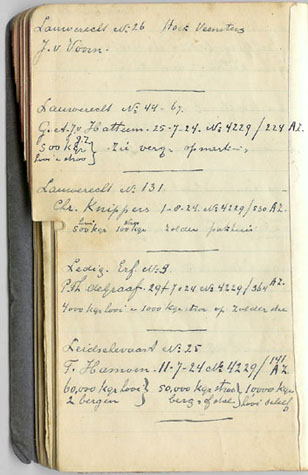 Lauwerecht No 26 Hoek Veensters
J. v. Voorn.
Lauwerecht No 44-67.
G. A. J. v Hattem. 25-7-24. No 4229/224 A.Z.
500 kgr zie verg. opmerk
hooi & stroo
Lauwerecht No 131
Chr. Knippers 1-8-24. No 4229/530 A.Z.
hooi stroo
500 kgr 100 kgr zolder pakhuis
Ledig Erf No 9
P. Th. de Graaf 29-7-24 No 4229/364 A.Z.
4000 kgr hooi & 1000 kgr stroo op zolder
Leidschevaart No 25
T. Hamoen. 11-7-24 No 4229/141 A.Z.
60,000 kgr hooi 50,000 kgr stroo 10000 kgr
2 bergen berg of deel hooi deel